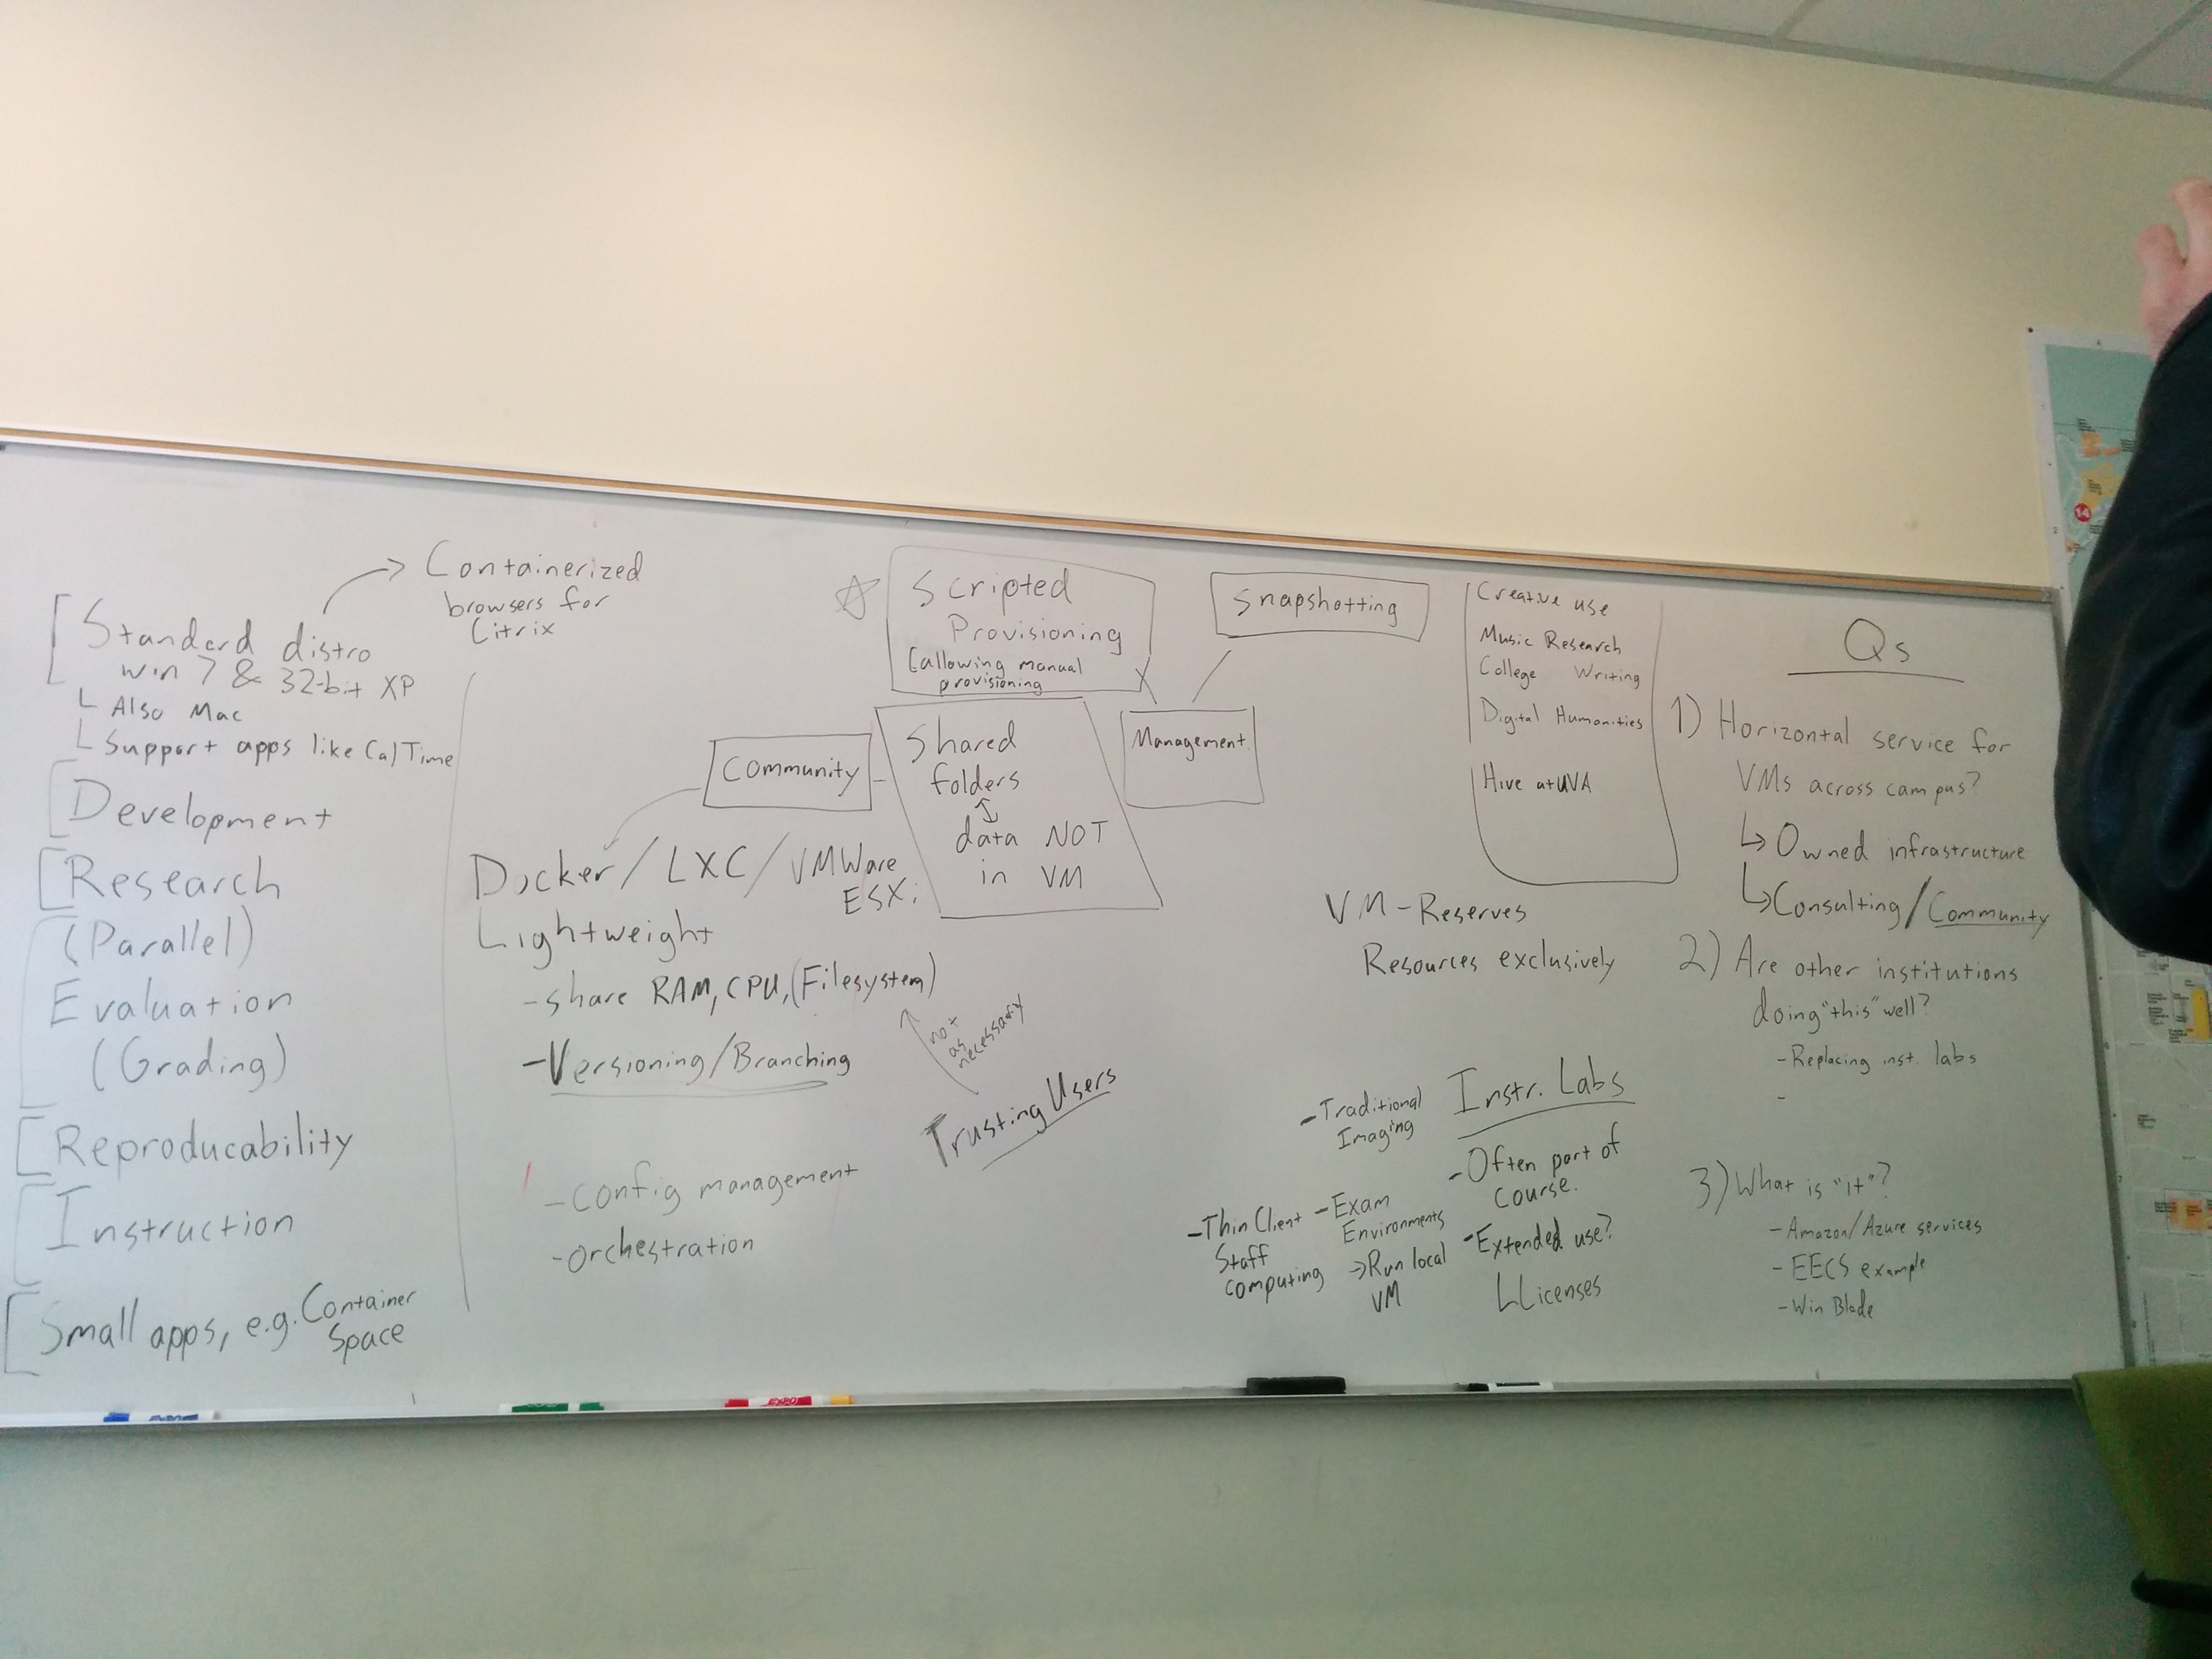 Containerized
browsers for
Citrix
Standard distro
win 7 & 32-bit XP
Also Mac
Support apps like CalTime
Development
Research
(Parallel)
Evaluation
(Grading)
Reproducability
Instruction
Small apps, e.g. Container
Space
Scripted
Provisioning
(allowing manual
provisioning
Snapshotting
Community
Shared
folders
data NOT
in VM
Management
Docker/LXC/VMWare
ESXi
Lightweight
-share RAM, CPU, (Filesystem)
-Versioning/Branching
not
as
necessary
Trusting Users
-config management
-orchestration
Creative use
Music Research
College Writing
Digital Humanities
Hive at UVA
VM-Reserves
Resources exclusively
Instr. Labs
-Traditional
Imaging
-Often part of
course.
-Thin Client
Staff
computing
-Exam
Environments
→Run local
VM
-Extended use?
Licenses
Qs
1) Horizontal service for
VMs across campus?
Owned infrastructure
Consulting/Community
2) Are other institutions
doing "this" well?
-Replacing inst. labs
-
3) What is "it"?
-Amazon/Azure services
-EECS example
-Win Blade
14
EXPO